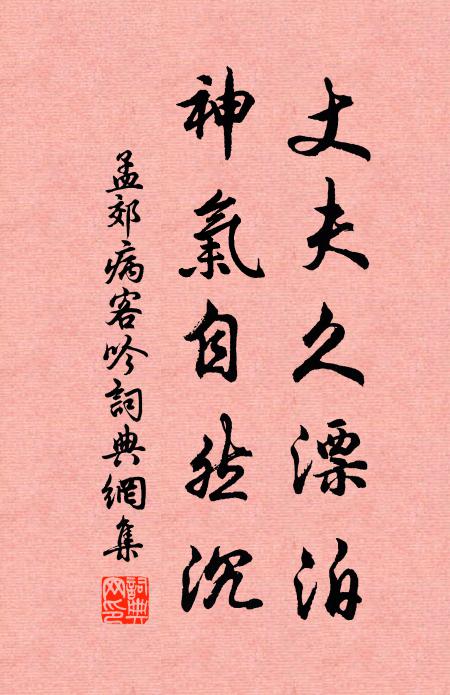 丈夫久漂泊
神氣自然沉
孟郊病客吟詞典網集
詞典网印